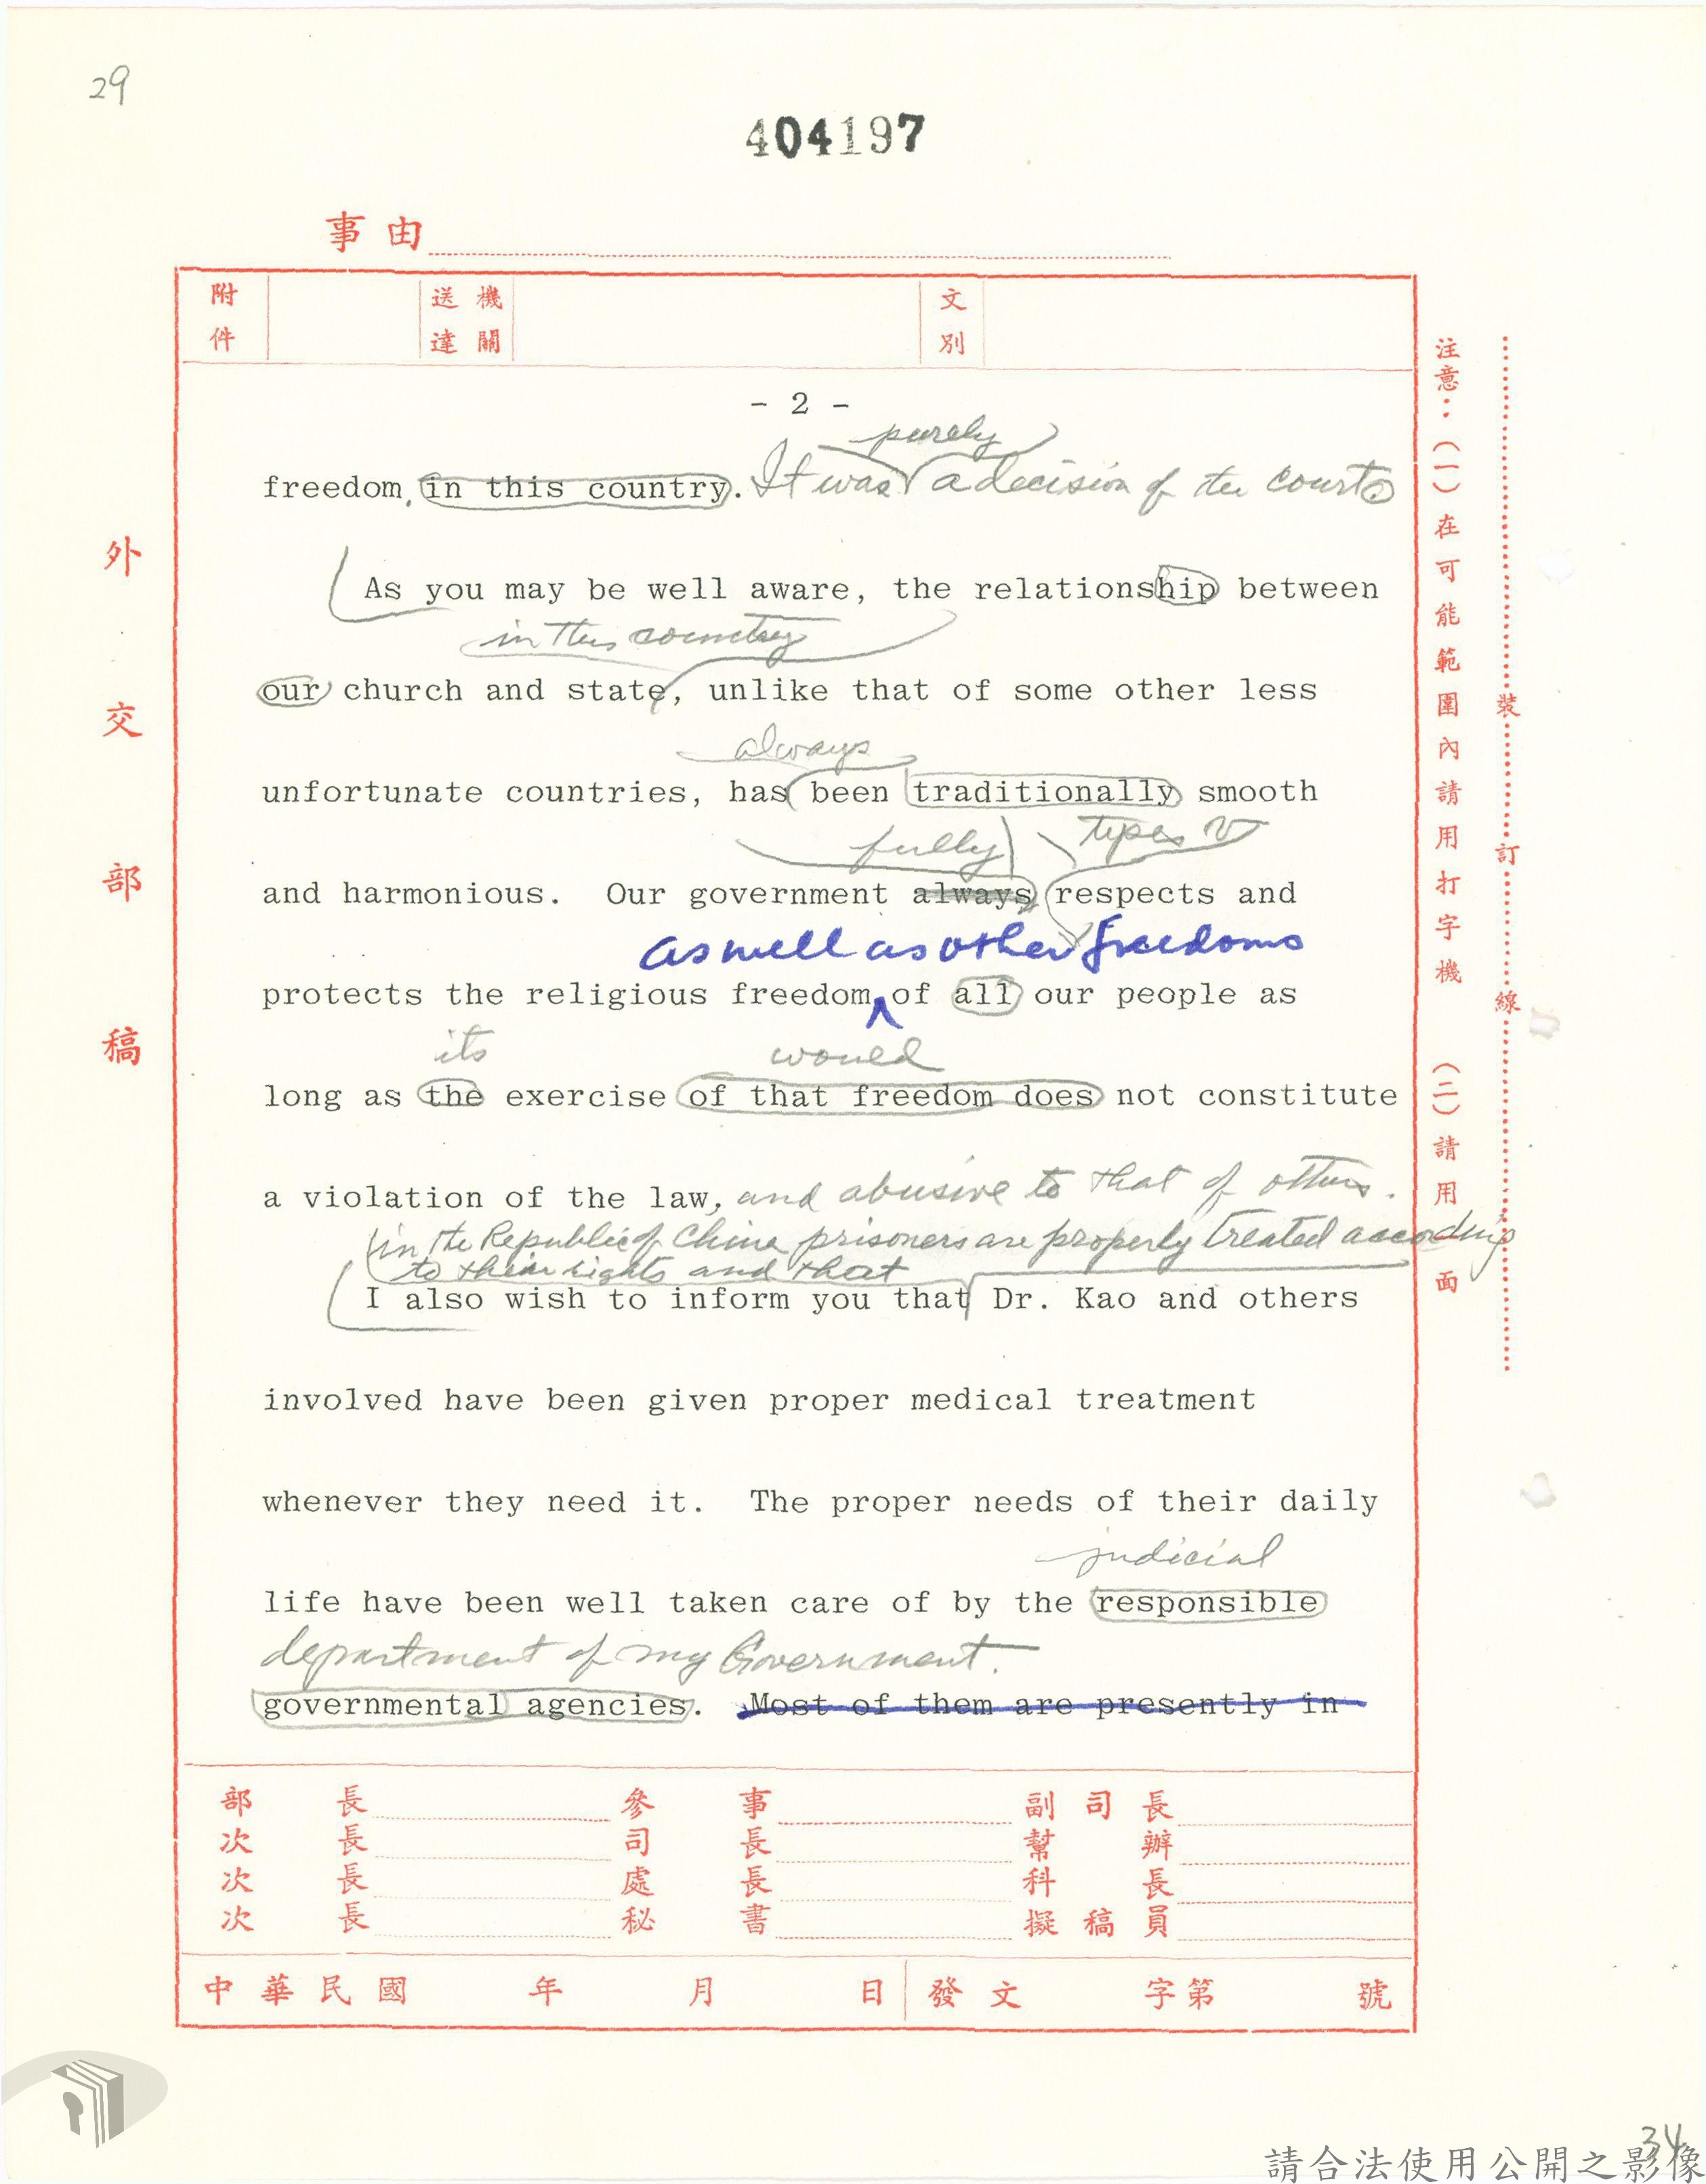 29
404197
事由
附件
送達機關
文別
- 2 -
purely
freedom, in this country. It was a decision of the courts
As you may be well aware, the relationship between
in this country
our church and state, unlike that of some other less
always
unfortunate countries, has been traditionally smooth
fully types
and harmonious. Our government always respects and
as well as other freedoms
protects the religious freedom of all our people as
its would
long as the exercise of that freedom does not constitute
a violation of the law, and abusive to that of others.
in the Republic of China prisoners are properly treated according
to their rights and that
I also wish to inform you that Dr. Kao and others
involved have been given proper medical treatment
whenever they need it. The proper needs of their daily
judicial
life have been well taken care of by the responsible
department of my Government.
governmental agencies. Most of them are presently in
部長 參事 副司長
次長 司長 幫辦
次長 處長 科長
次長 秘書 擬稿員
中華民國 年 月 日 發文 字第 號
外交部稿
注意：(一)在可能範圍內請用打字機 (二)請用 面
裝訂線
34
請合法使用公開之影像